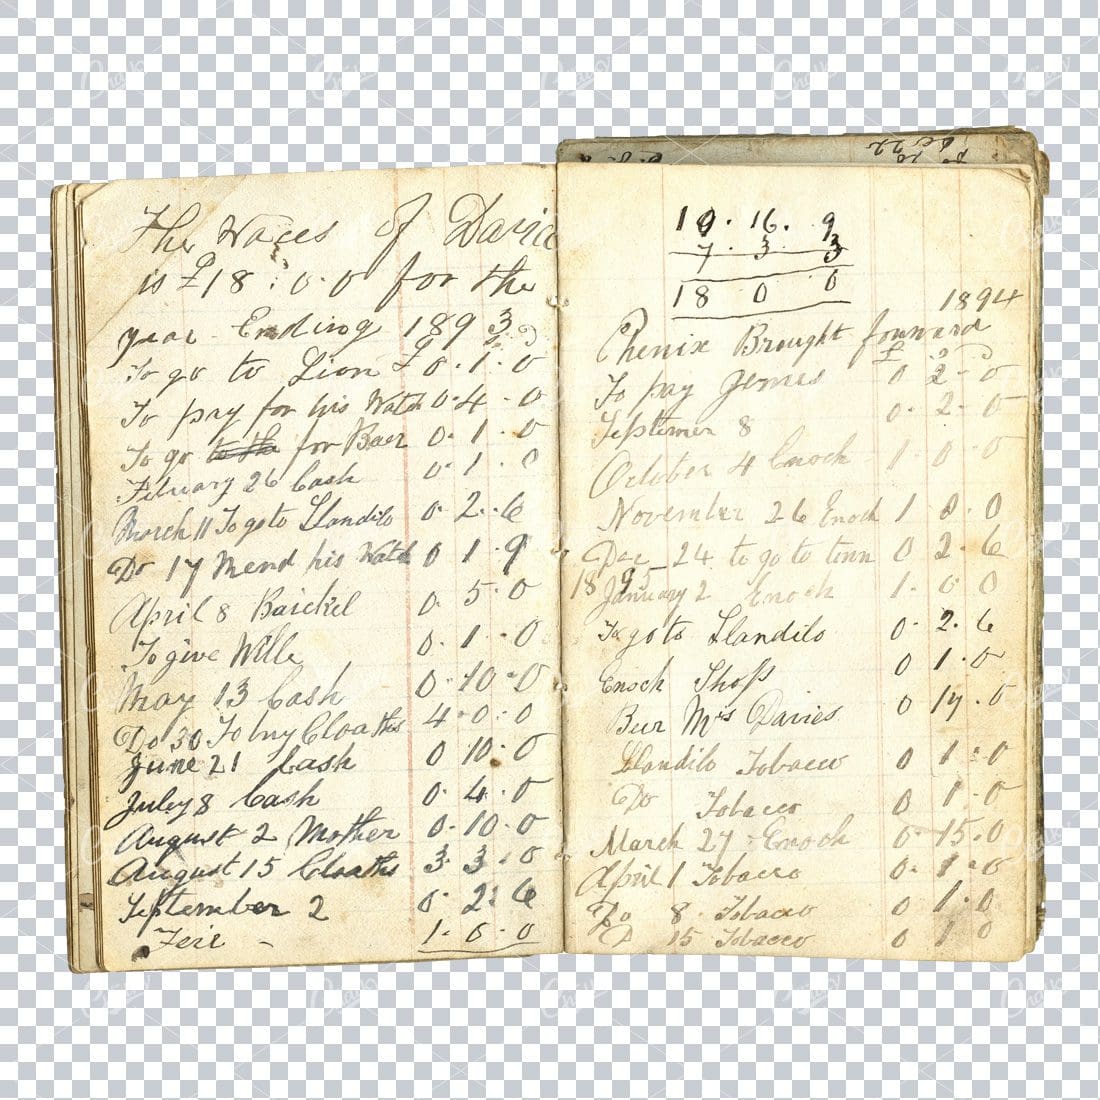 The Wages of David
is £18 : 0 . 0 for the
year Ending 1893
To go to Lion £0 . 1 . 0
To pay for his Watch 0 . 4 . 0
To go to the for Baer 0 . 1 . 0
Febuary 26 Cash 0 . 1 . 0
March 11 To go to Llandilo 0 . 2 . 6
Do 17 Mend his Watch 0 1 . 9
April 8 0 . 5 . 0
To give Wille 0 . 1 . 0
May 13 Cash 0 . 10 . 0
Do 30 To buy Cloaths 4 . 0 . 0
June 21 Cash 0 10 . 0
July 8 Cash 0 . 4 . 0
August 2 Mother 0 . 10 . 0
August 15 Cloaths 3 3 . 0
September 2 0 . 2 : 6
Feir - 1 . 0 . 0
10 . 16 . 9
7 . 3 . 3
18 0 0
1894
Phenix Brought forward
£
To pay Jemes 0 2 . 0
Septemer 8 0 . 2 . 0
October 4 Enoch 1 0 0
November 26 Enoch 1 0 . 0
Dec 24 to go to town 0 2 . 6
1895 January 2 Enoch 1 . 0 0
To go to Llandilo 0 . 2 . 6
Enoch Shop 0 1 . 0
Bur Mrs Davies 0 17 . 0
Llandilo Tobacco 0 1 : 0
Do Tobacco 0 1 . 0
March 27 Enoch 0 . 15 . 0
April 1 Tobacco 0 . 1 . 0
Do 8 . Tobacco 0 1 . 0
D 15 Tobacco 0 1 0